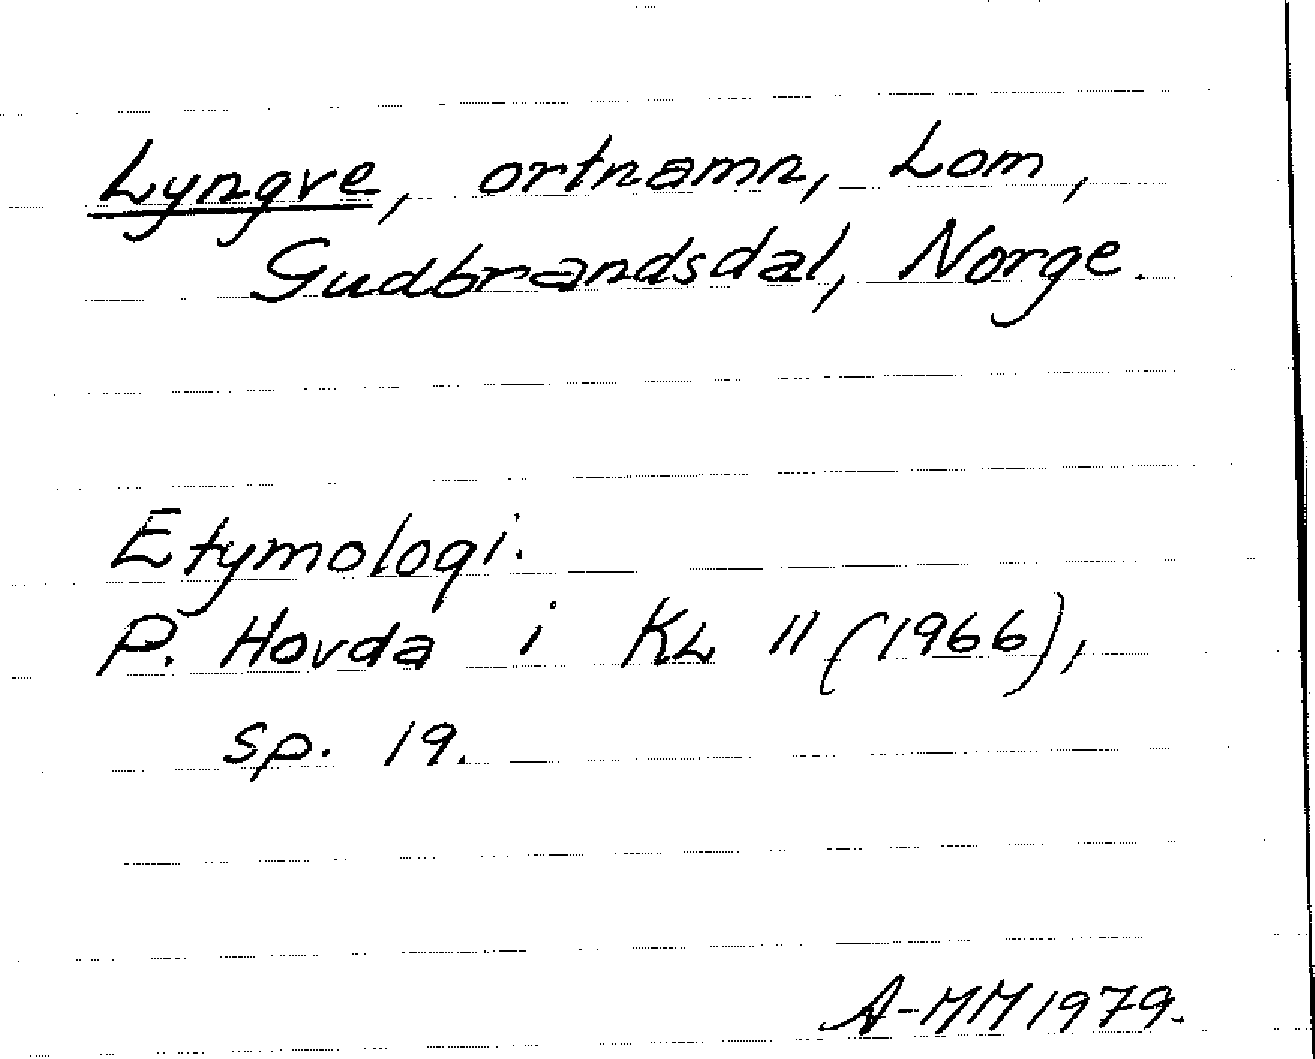 Lyngve, ortnamn, Lom,
Gudbrandsdal, Norge.
Etymologi.
P. Hovda i KL 11 (1966),
sp. 19.
A-MM 1979.